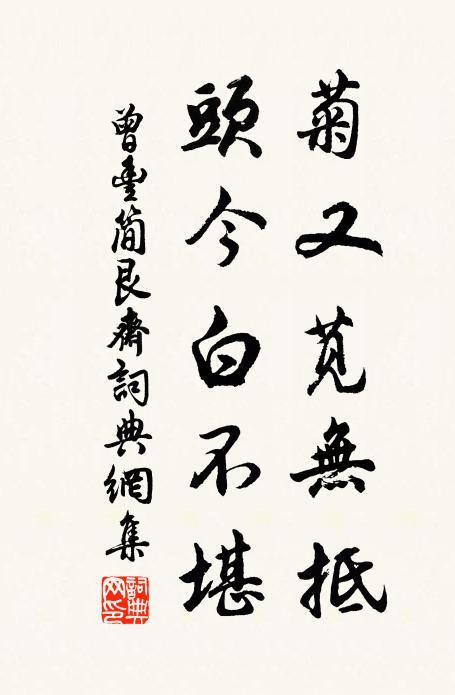 菊又莧無抵
頭今白不堪
曾豐簡艮齋詞典網集
詞典
网印